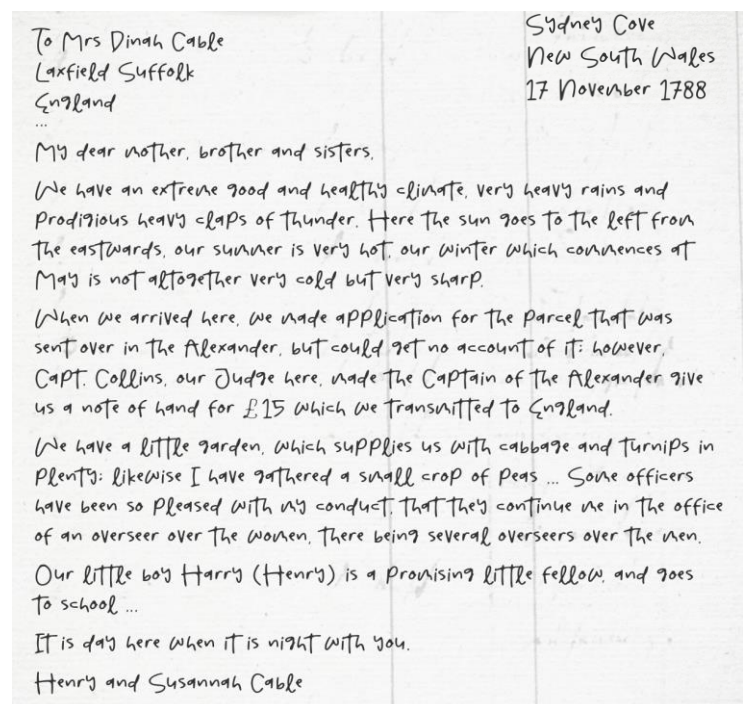 To Mrs Dinah Cable
Laxfield Suffolk
England
...
Sydney Cove
New South Wales
17 November 1788
My dear mother, brother and sisters,
We have an extreme good and healthy climate, very heavy rains and
prodigious heavy claps of thunder. Here the sun goes to the left from
the eastwards, our summer is very hot, our winter which commences at
May is not altogether very cold but very sharp.
When we arrived here, we made application for the parcel that was
sent over in the Alexander, but could get no account of it; however,
Capt. Collins, our Judge here, made the Captain of the Alexander give
us a note of hand for £15 which we transmitted to England.
We have a little garden, which supplies us with cabbage and turnips in
plenty; likewise I have gathered a small crop of peas ... Some officers
have been so pleased with my conduct, that they continue me in the office
of an overseer over the women, there being several overseers over the men.
Our little boy Harry (Henry) is a promising little fellow, and goes
to school ...
It is day here when it is night with you.
Henry and Susannah Cable